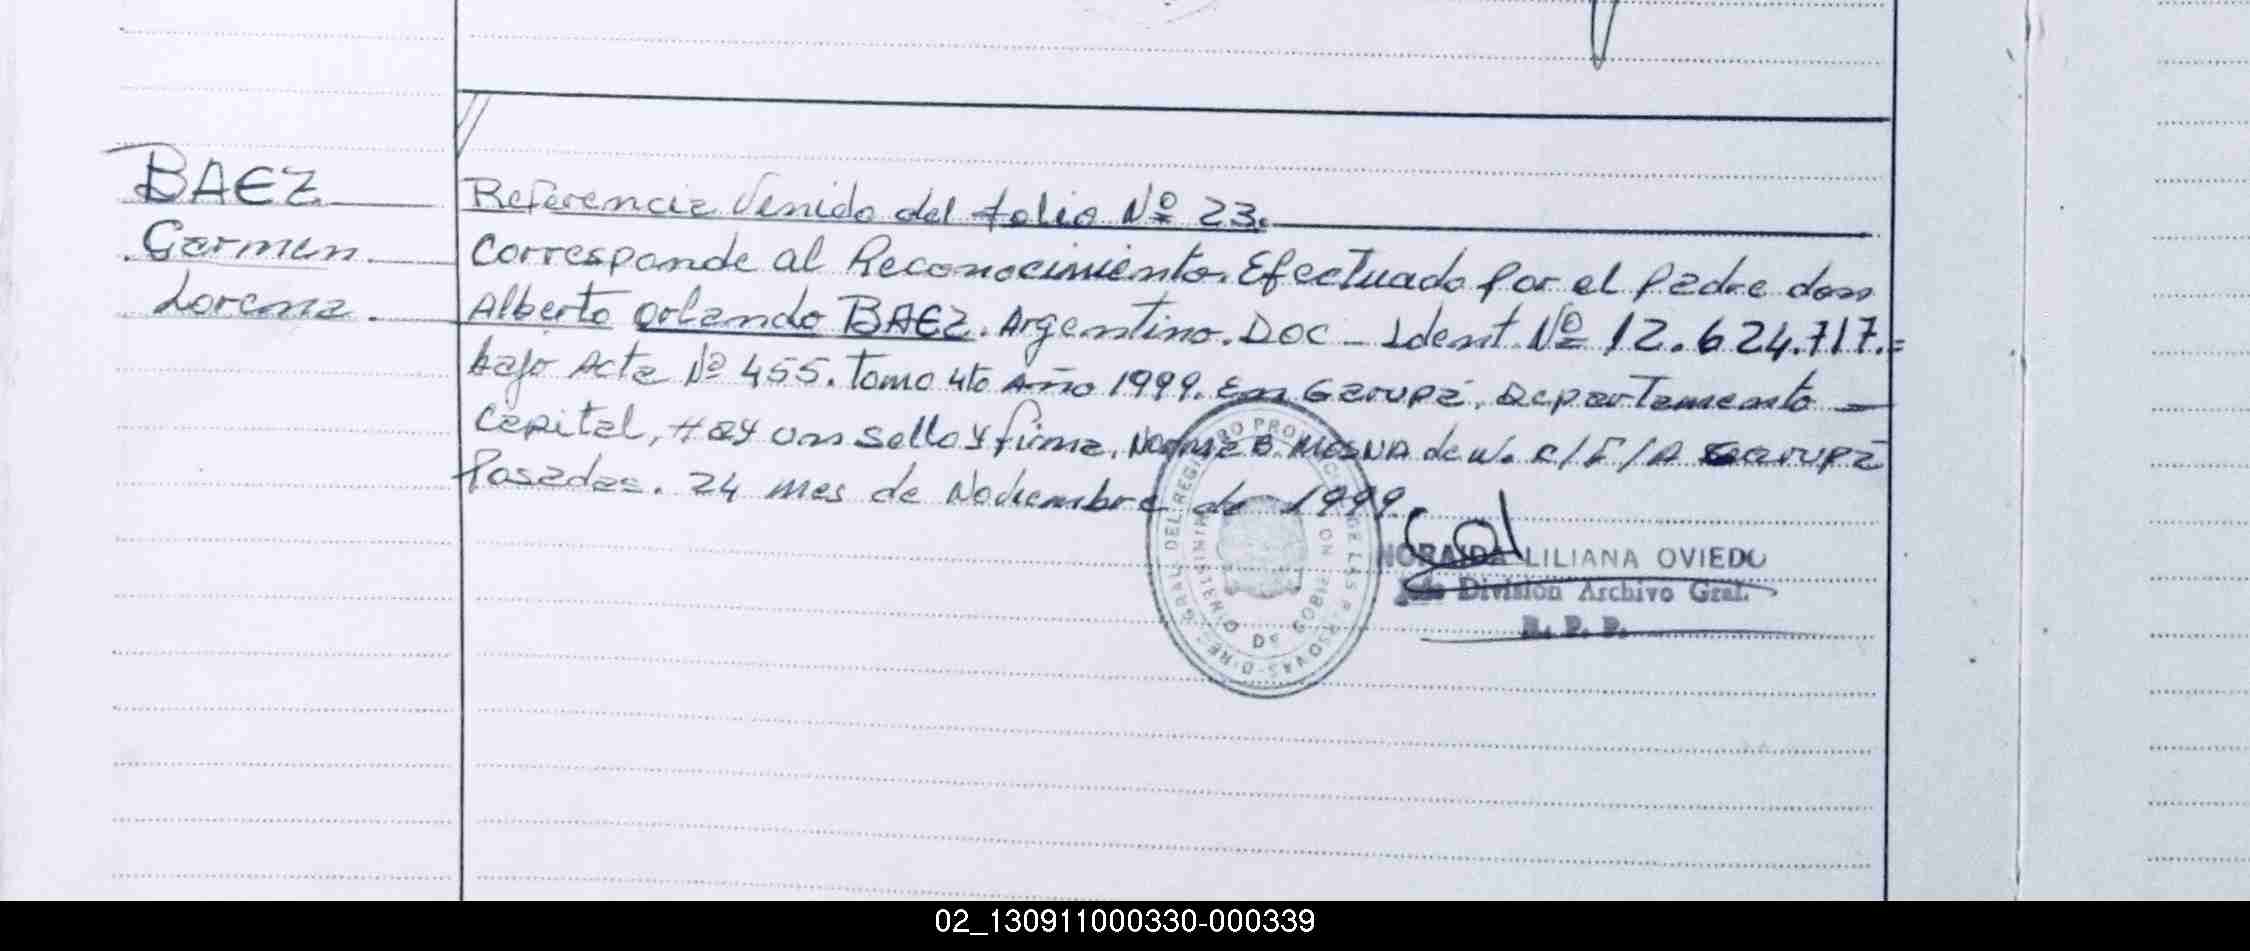 BAEZ
Carmen
Lorena
Referencia Venido del folio Nº 23.
Corresponde al Reconocimiento. Efectuado por el Padre don
Alberto Orlando BAEZ. Argentino. Doc - Ident. Nº 12.624.717.=
bajo Acta Nº 455. Tomo 4to Año 1999. En Garupá, Departamento -
Capital, Hay un sello y firma, Norma B. de W. E/F/A Garupá
Posadas. 24 mes de Noviembre de 1999.
NORAIDA LILIANA OVIEDO
División Archivo Gral.
R. P. P.
DIREC. GRAL. DEL REGISTRO PROVINCIAL DE LAS PERSONAS
MINISTERIO DE GOBIERNO
02_130911000330-000339